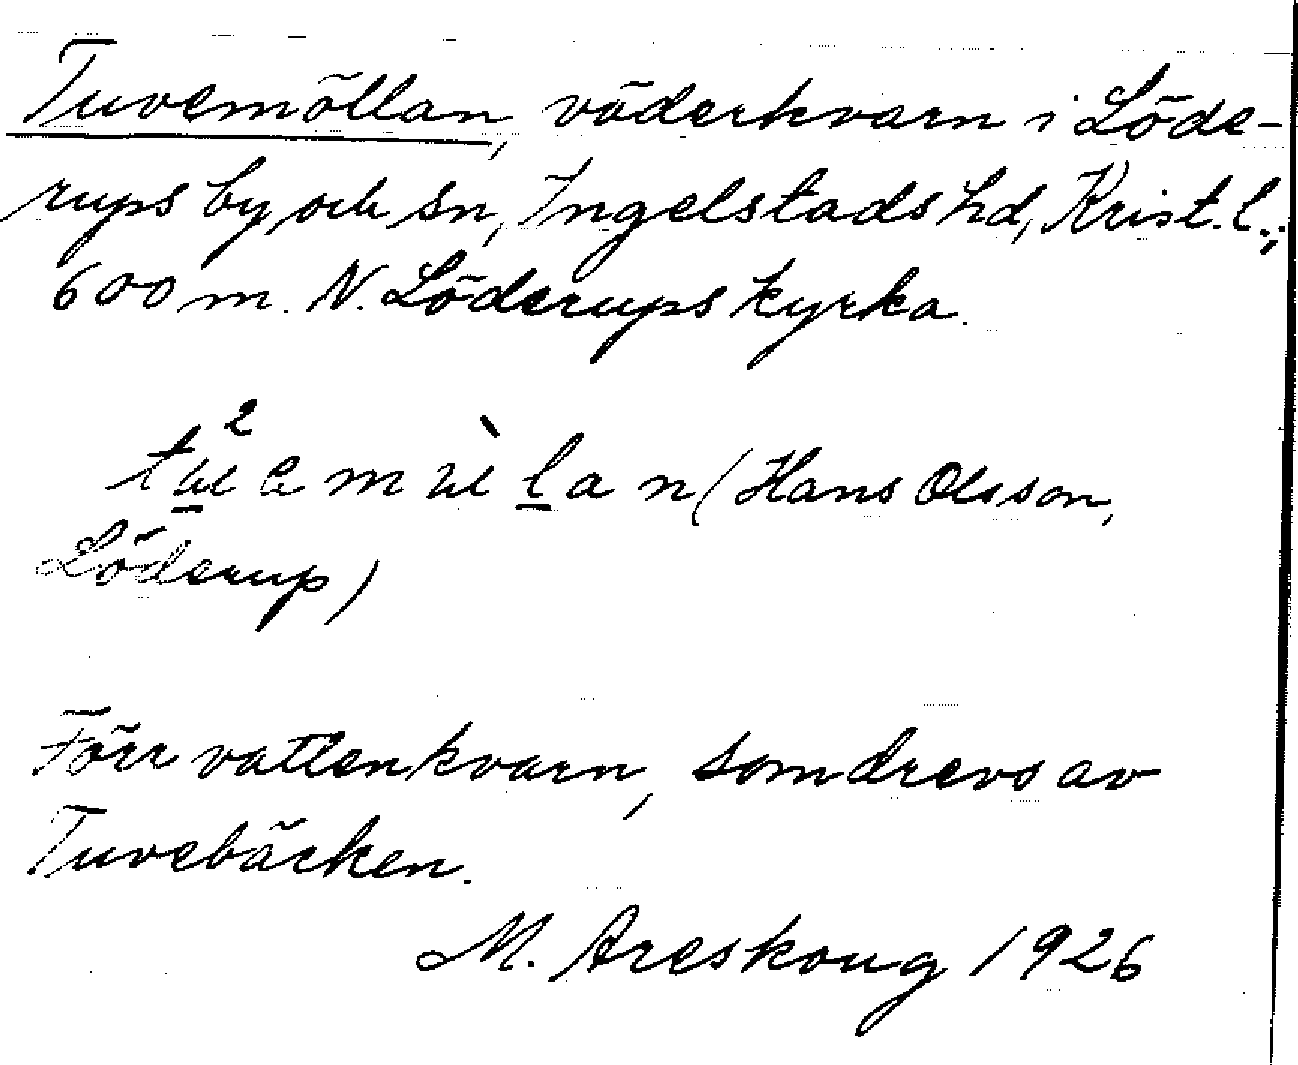 Tuvemöllan, väderkvarn i Löde-
rups by och sn, Ingelstads hd, Krist. l.;
600 m. N. Löderups kyrka.
(Hans Olsson,
Löderup)
Förr vattenkvarn, som drevs av
Tuvebäcken.
M. Areskoug 1926